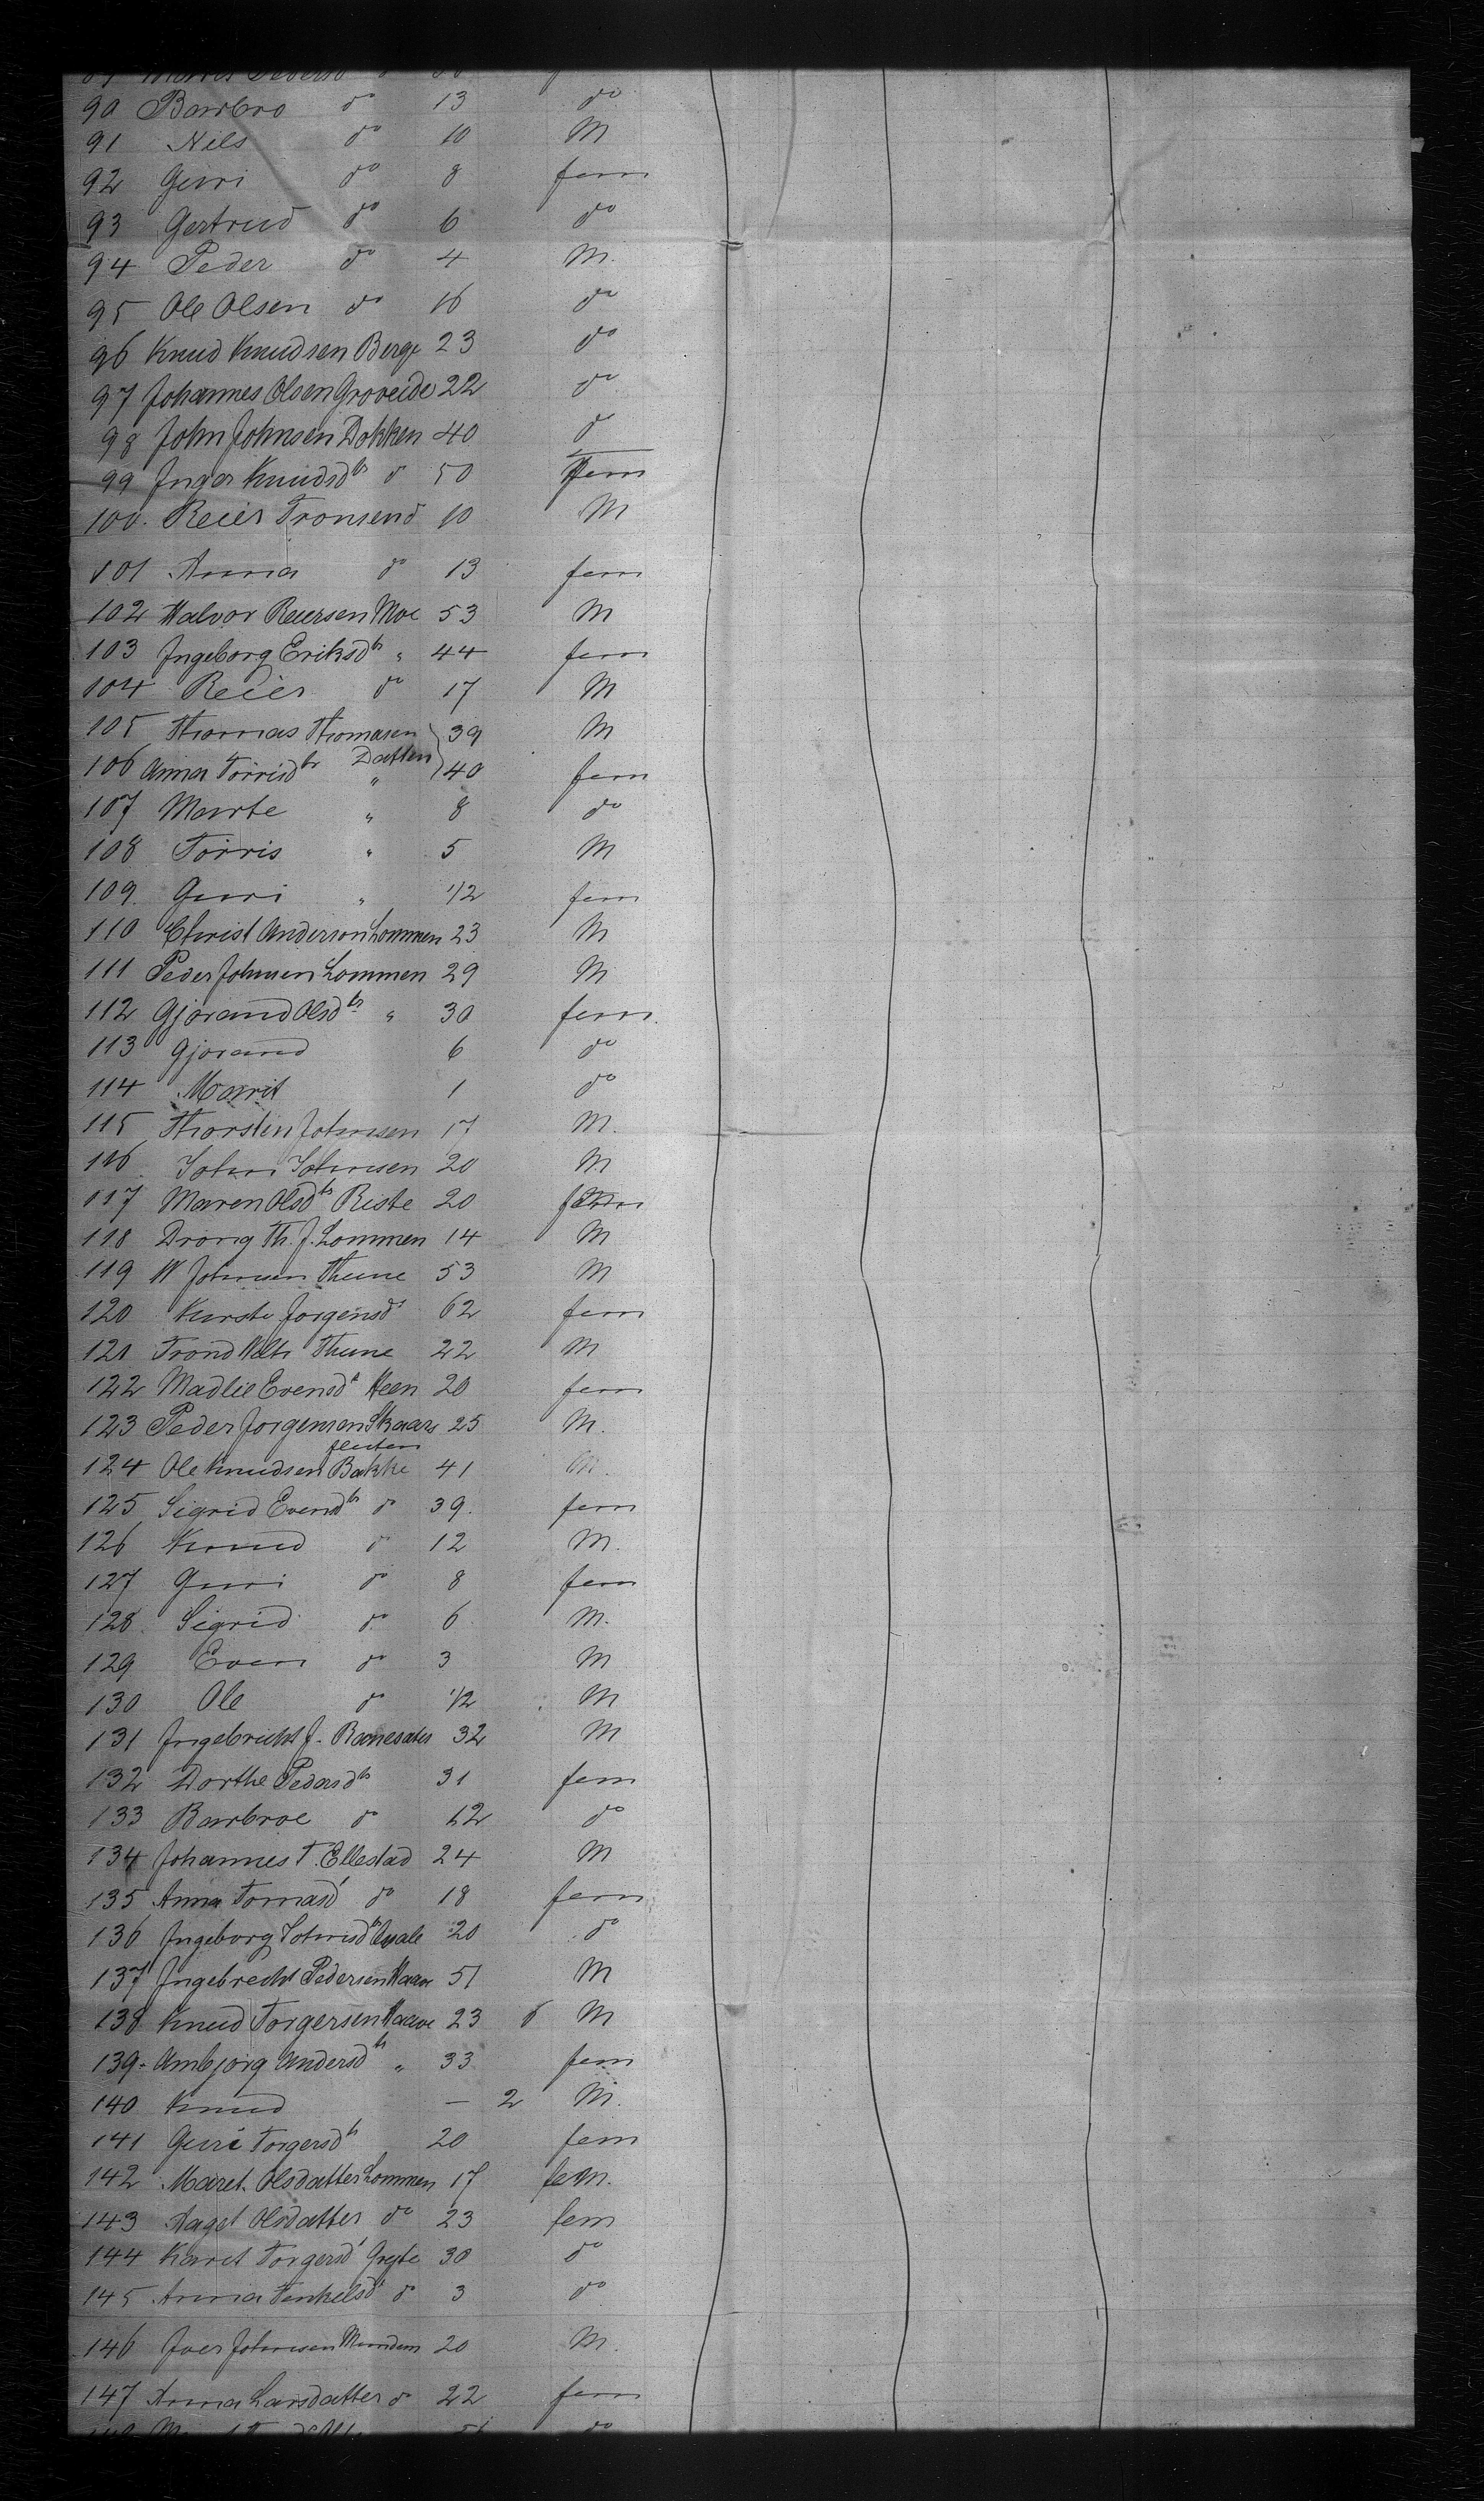 90 Barbro do 13 do
91 Nils do 10 M
92 Guri do 8 fem
93 Gertrud do 6 do
94 Peder do 4 M.
95 Ole Olsen do 16 do
96 Knud Knudsen Berge 23 do
97 Johannes Olsen Groveide 22 do
98 John Johnsen Dokken 40 do
99 Inger Knudsdtr do 50 fem
100. Reier Tronsend 10 M
101 Anna do 13 fem
102 Halvor Reiersen Moe 53 M
103 Ingeborg Eriksdtr " 44 fem
104 Reier do 17 M
105 Thomas Thomasen 39 M
106 Anna Torrisdtr Datten " 40 fem
107 Marte " 8 do
108 Torris " 5 M
109. Guri " 1/2 fem
110 Christ Anderson Lommen 23 M
111 Peder Johnsen Lommen 29 M
112 Gjorand Olsdtr " 30 fem.
113 Gjorand 6 do
114 Marit 1 do
115 Thorsten Johnsen 17 M.
116 John Johnsen 20 M
117 Maren Olsdtr Riste 20 fem
118 Drong Th. J. Lommen 14 M
119 H Johnsen Thune 53 M
120 Kirsti Jorgensdt 62 fem
121 Trond Thune 22 M
122 Madlie Evensdt Heen 20 fem
123 Peder Jorgensen Skaars 25 M.
124 Ole Knudsen Bakke 41 M.
125 Sigrid Evensdtr do 39. fem
126 Knud do 12 M.
127 Guri do 8 fem
128. Sigrid do 6 M.
129 Even do 3 M
130 Ole do 1/2 M
131 Ingebricht J. 32 M
132 Dorthe Pedersdtr 31 fem
133 Barbroe do 12 do
134 Johannes T. Ellestad 24 M
135 Anna Tomasd do 18 fem
136 Ingeborg Johnsdtr 20 do
137 Ingebrecht Pedersen Haave 51 M
138 Knud Torgersen Haave 23 M
139. Ambjorg Andersdtr " 33 fem
140 Knud — 2 M.
141 Guri Torgersdtr 20 fem
142 Maret. Olsdatter Lommen 17 feM.
143 Aagot Olsdatter do 23 fem
144 Karet Torgersd 30 do
145 Anna do 3 do
146 Iver Johnsen 20 M.
147 Anna Larsdatter do 22 fem